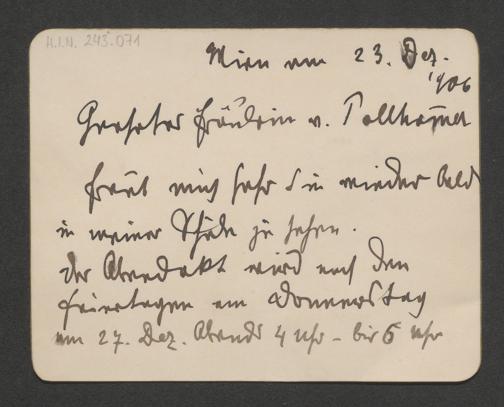 H.I.N. 243.071
Wien am 23. Dez.
1906
Geehrtes Fräulein v. Pollhamer
freut mich sehr Sie wieder bald
in meiner Schule zu sehen.
der Abendakt wird nach den
Feiertagen am Donnerstag
am 27. Dez. Abends 4 Uhr – bis 6 Uhr